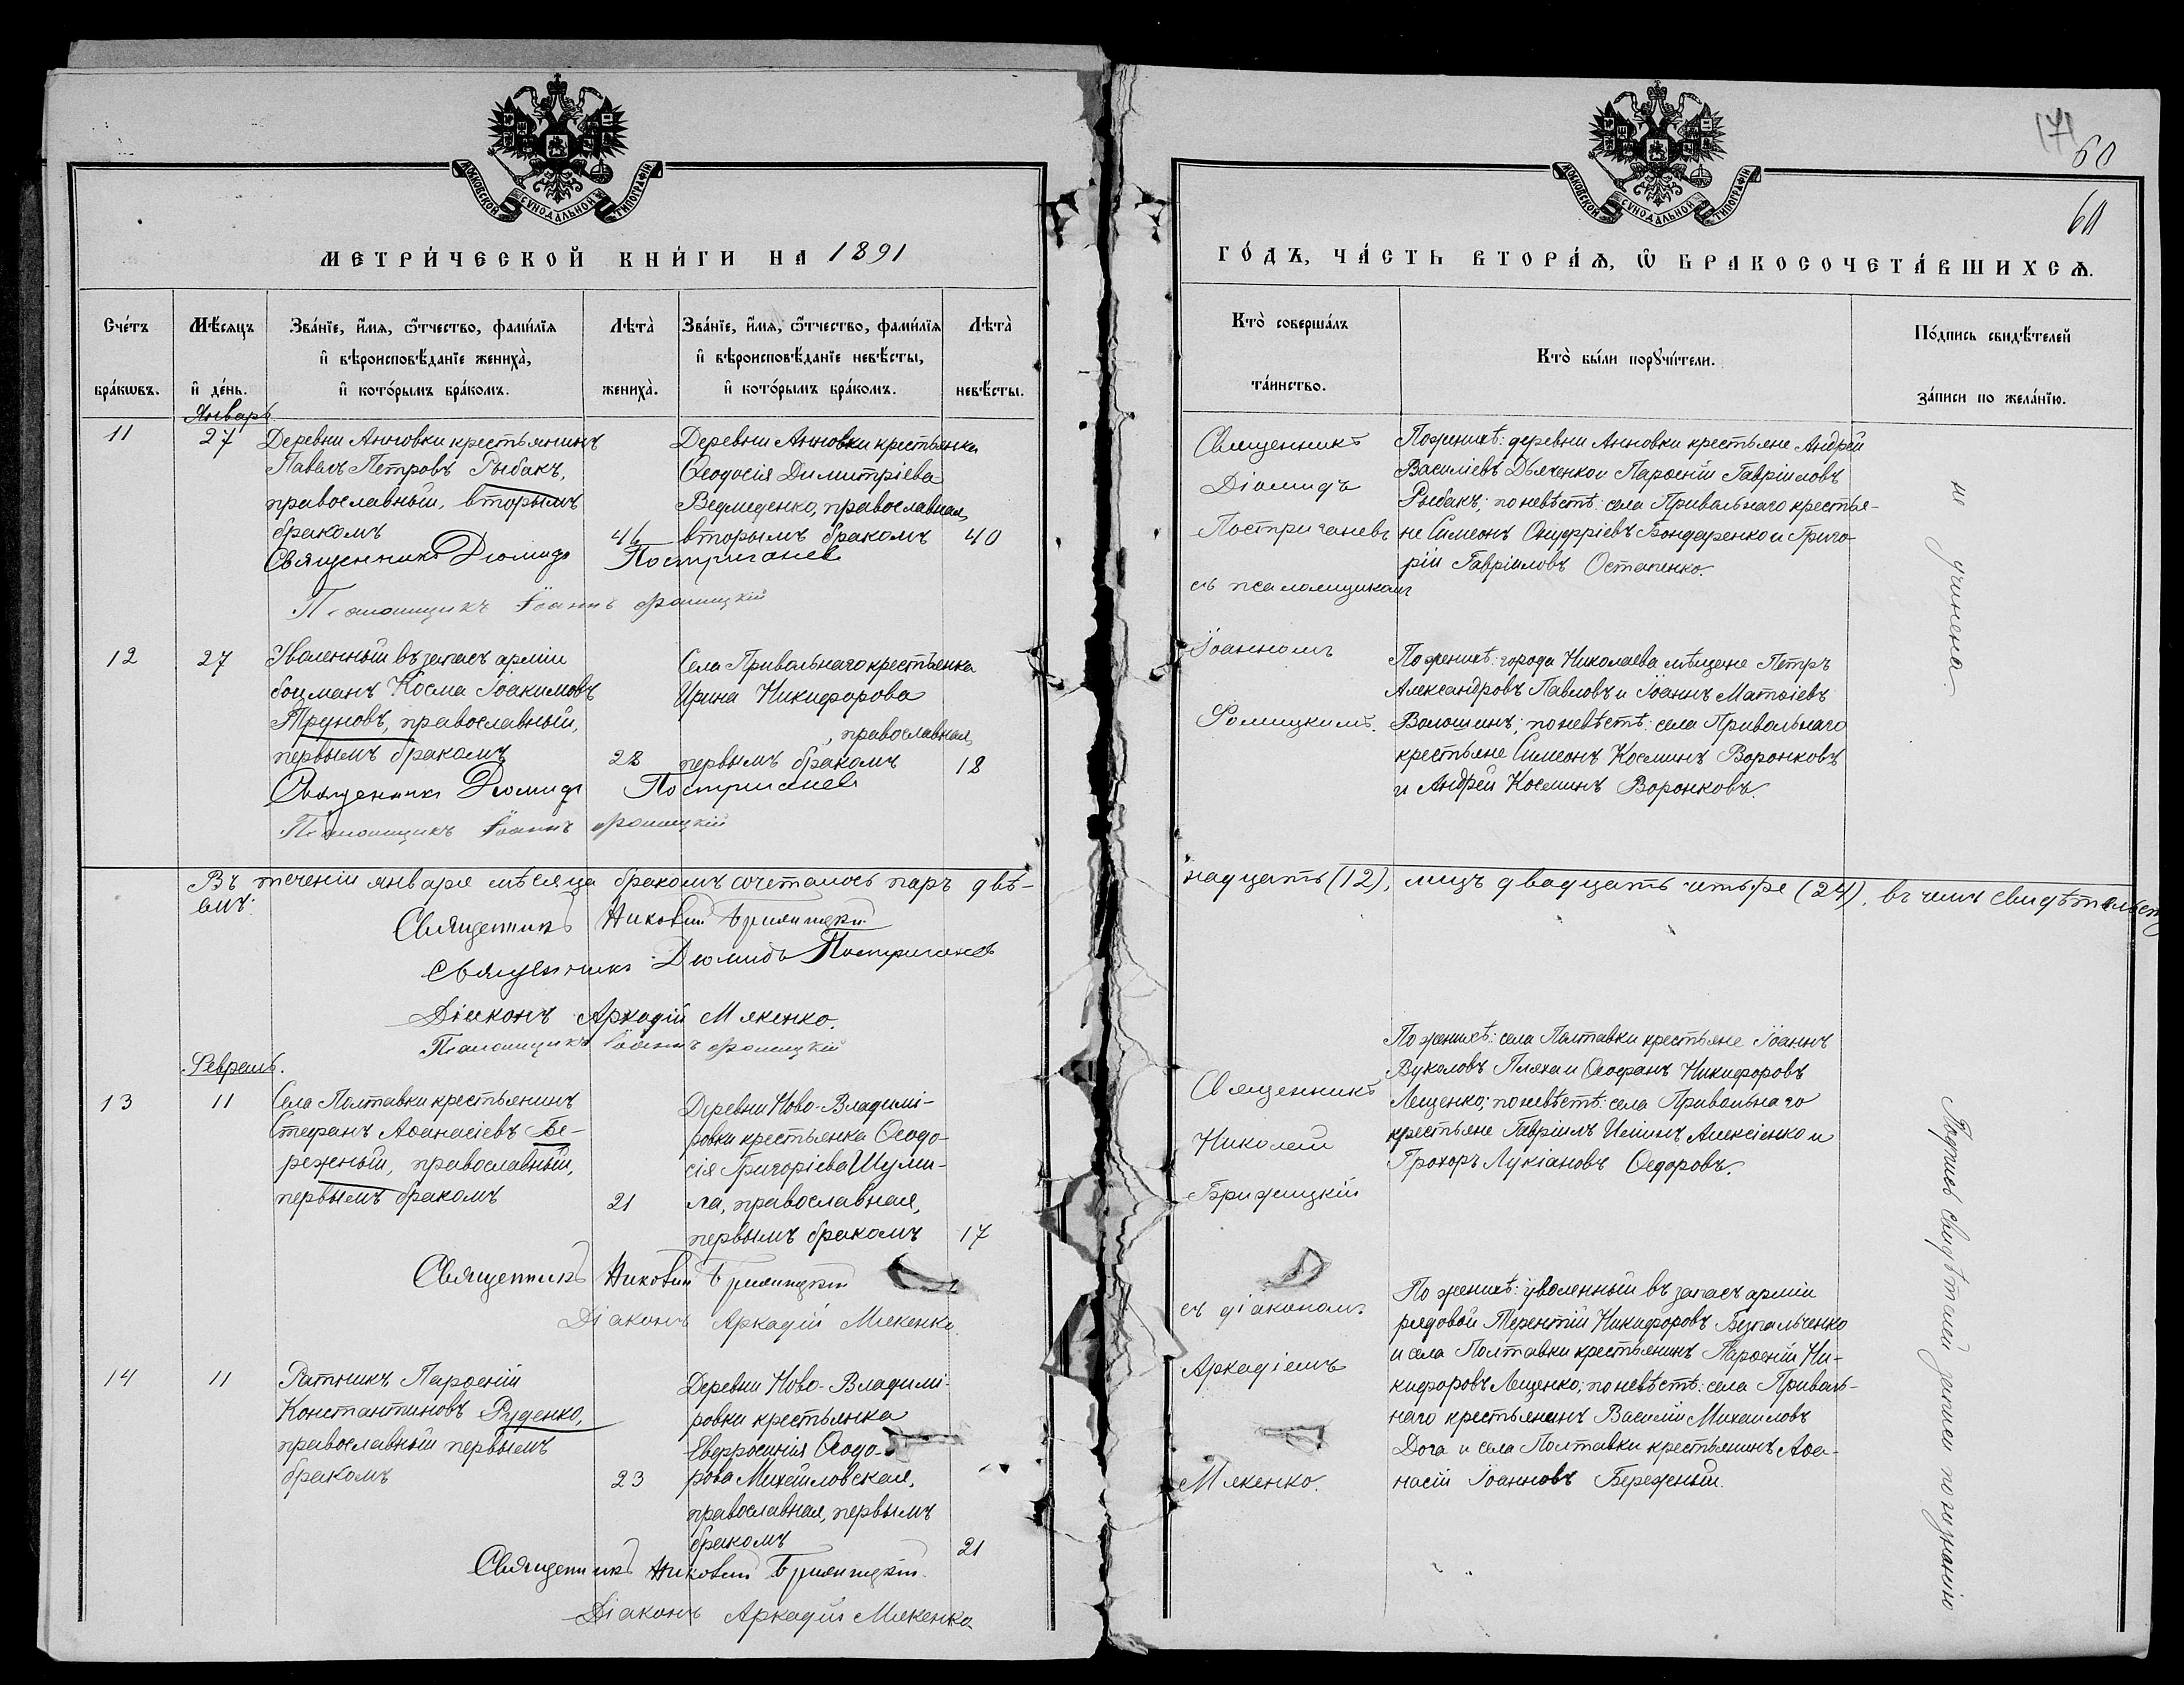 МОСКОВСКОЙ СѴНОДАЛЬНОЙ ТИПОГРАФІИ
МЕТРИ́ЧЕСКОЙ КНИ́ГИ НА 1891
Сче́тъ бра́кѡвъ.
Мѣ́сяцъ и҆ де́нь.
Зва́нїе, и҆́мѧ, ѻ҆́тчество, фами́лїѧ
и҆ вѣроисповѣ́данїе жениха̀,
и҆ кото́рымъ бра́комъ.
Лѣта̀ жениха̀.
Зва́нїе, и҆́мѧ, ѻ҆́тчество, фами́лїѧ
и҆ вѣроисповѣ́данїе невѣ́сты,
и҆ кото́рымъ бра́комъ.
Лѣта̀ невѣ́сты.
Январь
11
27
Деревни Анновки крестьянинъ
Павелъ Петровъ Рыбакъ,
православный, вторымъ
бракомъ
46
Деревни Анновки крестьянка
Ѳеодосія Димитріева
Ведмеденко, православная,
вторымъ бракомъ
40
Священникъ Діомидъ Постригачевъ
Псаломщикъ Іоаннъ Фомицкій
12
27
Уволенный въ запасъ арміи
боцманъ Косма Іоакимовъ
Труновъ, православный,
первымъ бракомъ
28
Села Привольнаго крестьянка
Ирина Никифорова
, православная,
первымъ бракомъ
18
Священникъ Діомидъ Постригачевъ
Псаломщикъ Іоаннъ Фомицкій
Въ теченіи января мѣсяца бракомъ сочеталось паръ двѣ-
Священникъ Николай Брижицкій
Священникъ Діомидъ Постригачевъ
Діаконъ Аркадій Мякенко.
Псаломщикъ Іоаннъ Фомицкій
Февраль.
13
11
Села Полтавки крестьянинъ
Стефанъ Аѳанасіевъ Бе-
режный, православный,
первымъ бракомъ
21
Деревни Ново-Владимі-
ровки крестьянка Ѳеодо-
сія Григоріева Шуми-
ла, православная,
первымъ бракомъ
17
Священникъ Николай Брижицкій
Діаконъ Аркадій Мякенко
14
11
Ратникъ Парѳеній
Константиновъ Руденко,
православный первымъ
бракомъ
23
Деревни Ново-Владимі-
ровки крестьянка
Евфросинія Ѳеодо-
рова Михайловская,
православная, первымъ
бракомъ
21
Священникъ Николай Брижицкій
Діаконъ Аркадій Мякенко
60
60
МОСКОВСКОЙ СѴНОДАЛЬНОЙ ТИПОГРАФІИ
ГО́ДЪ, ЧА́СТЬ ВТОРА́Ѧ, Ѡ҆ БРАКОСОЧЕТА́ВШИХСѦ.
Кто̀ соверша́лъ
та́инство.
Кто̀ бы́ли порꙋчи́тели.
По́дпись свидѣ́телей
за́писи по жела́нїю.
Священникъ
Діомидъ
Постригачевъ
съ псаломщикомъ
Іоанномъ
Фомицкимъ.
По женихѣ: деревни Анновки крестьяне Андрей
Василіевъ Дьяченко и Парѳеній Гавріиловъ
Рыбакъ; по невѣстѣ: села Привольнаго крестья-
не Симеонъ Онуфріевъ Бондаренко и Григо-
рій Гавріиловъ Остапенко.
По женихѣ: города Николаева мѣщане Петръ
Александровъ Павловъ и Іоаннъ Матѳіевъ
Волошинъ; по невѣстѣ: села Привольнаго
крестьяне Симеонъ Косминъ Воронковъ
и Андрей Косминъ Воронковъ.
надцать (12), лицъ двадцать четыре (24), въ чемъ свидѣтельст
Священникъ
Николай
Брижицкій
съ діакономъ
Аркадіемъ
Мякенко.
По женихѣ: села Полтавки крестьяне Іоаннъ
Вуколовъ Пляха и Ѳеофанъ Никифоровъ
Лещенко; по невѣстѣ: села Привольнаго
крестьяне Гавріилъ Иліинъ Алексіенко и
Прохоръ Лукіановъ Ѳедоровъ.
По женихѣ: уволенный въ запасъ арміи
рядовой Терентій Никифоровъ Безпальченко
и села Полтавки крестьянинъ Парѳеній Ни-
кифоровъ Лещенко; по невѣстѣ: села Приволь-
наго крестьянинъ Василій Михаиловъ
Дога и села Полтавки крестьянинъ Аѳа-
насій Іоанновъ Бережный.
Подпись свидѣтелей записи по желанію
не учинена.